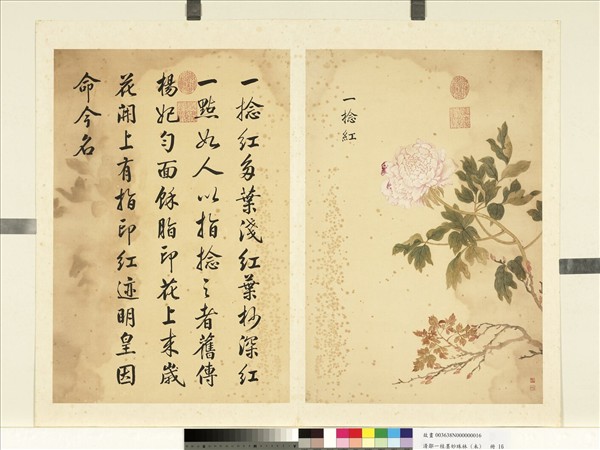 一捻紅
一捻紅多葉淺紅葉杪深紅
一點如人以指捻之者舊傳
楊妃勻面餘脂印花上來歲
花開上有指印紅迹明皇因
命今名
故畫 003638N000000016
冊 16